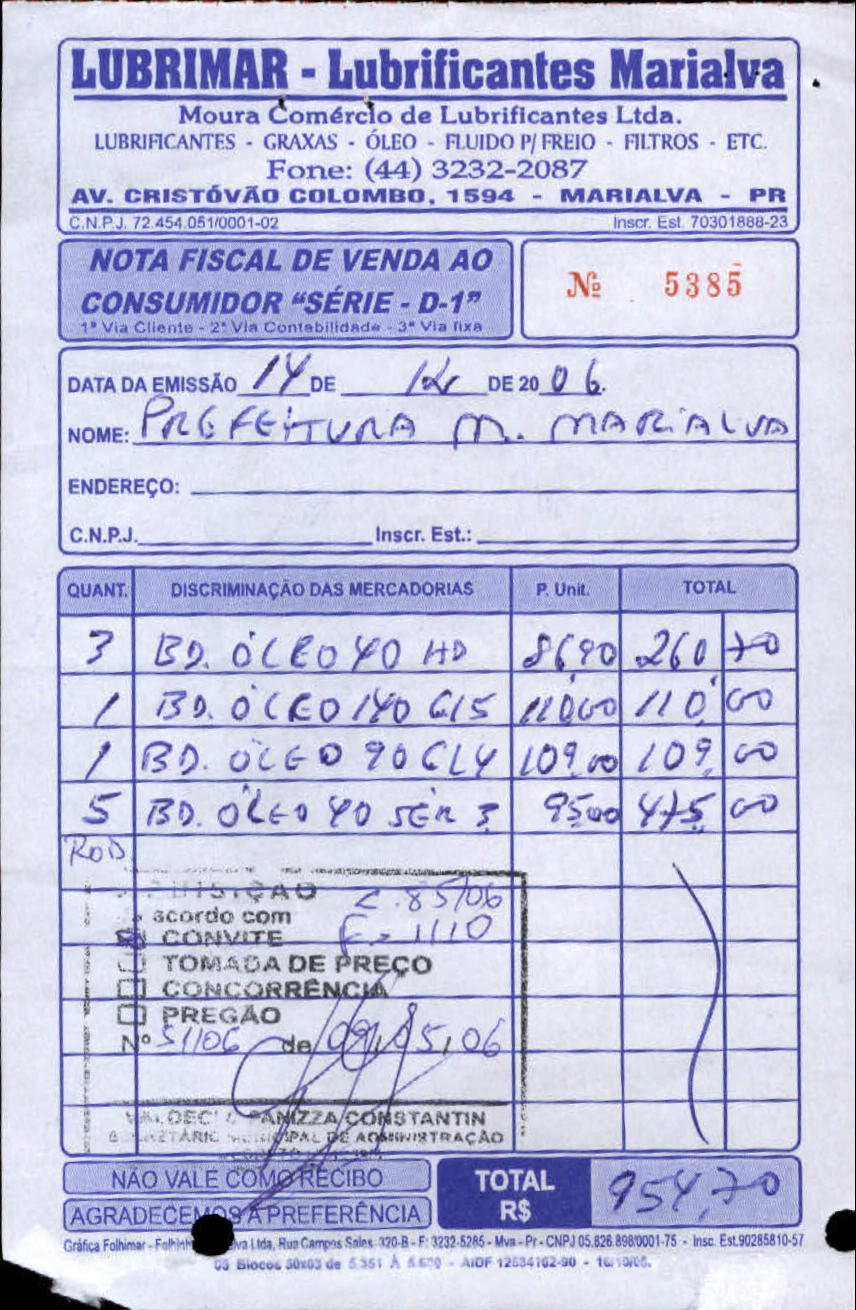 LUBRIMAR - Lubrificantes Marialva
Moura Comércio de Lubrificantes Ltda.
LUBRIFICANTES - GRAXAS - ÓLEO - FLUIDO P/ FREIO - FILTROS - ETC.
Fone: (44) 3232-2087
AV. CRISTÓVÃO COLOMBO, 1594 - MARIALVA - PR
C.N.P.J. 72.454.051/0001-02 Inscr. Est. 70301888-23
NOTA FISCAL DE VENDA AO
CONSUMIDOR "SÉRIE - D-1"
1ª Via Cliente - 2ª Via Contabilidade - 3ª Via fixa
Nº 5385
DATA DA EMISSÃO 14 DE 12 DE 2006.
NOME: PREFEITURA M. MARIALVA
ENDEREÇO:
C.N.P.J. Inscr. Est.:
QUANT. DISCRIMINAÇÃO DAS MERCADORIAS P. Unit. TOTAL
3 BD. ÓLEO 40 HD 86,90 260,70
1 BD. ÓLEO 140 GL5 110,00 110,00
1 BD. ÓLEO 90 GL4 109,00 109,00
5 BD. ÓLEO 40 SÉR 3 95,00 475,00
ROD
C. 85/06
acordo com
CONVITE F- 1110
TOMADA DE PREÇO
CONCORRÊNCIA
PREGÃO
Nº 51/06 de 09,05,06
PANIZZA CONSTANTIN
MUNICIPAL DE ADMINISTRAÇÃO
NÃO VALE COMO RECIBO
AGRADECEMOS A PREFERÊNCIA
TOTAL
R$ 954,70
Gráfica Folhimar - Ltda, Rua Campos Sales, 320-B - F: 3232-5285 - Mva - Pr - CNPJ 05.826.898/0001-75 - Insc. Est.90285810-57
Blocos 50x03 de 5.351 À - AIDF